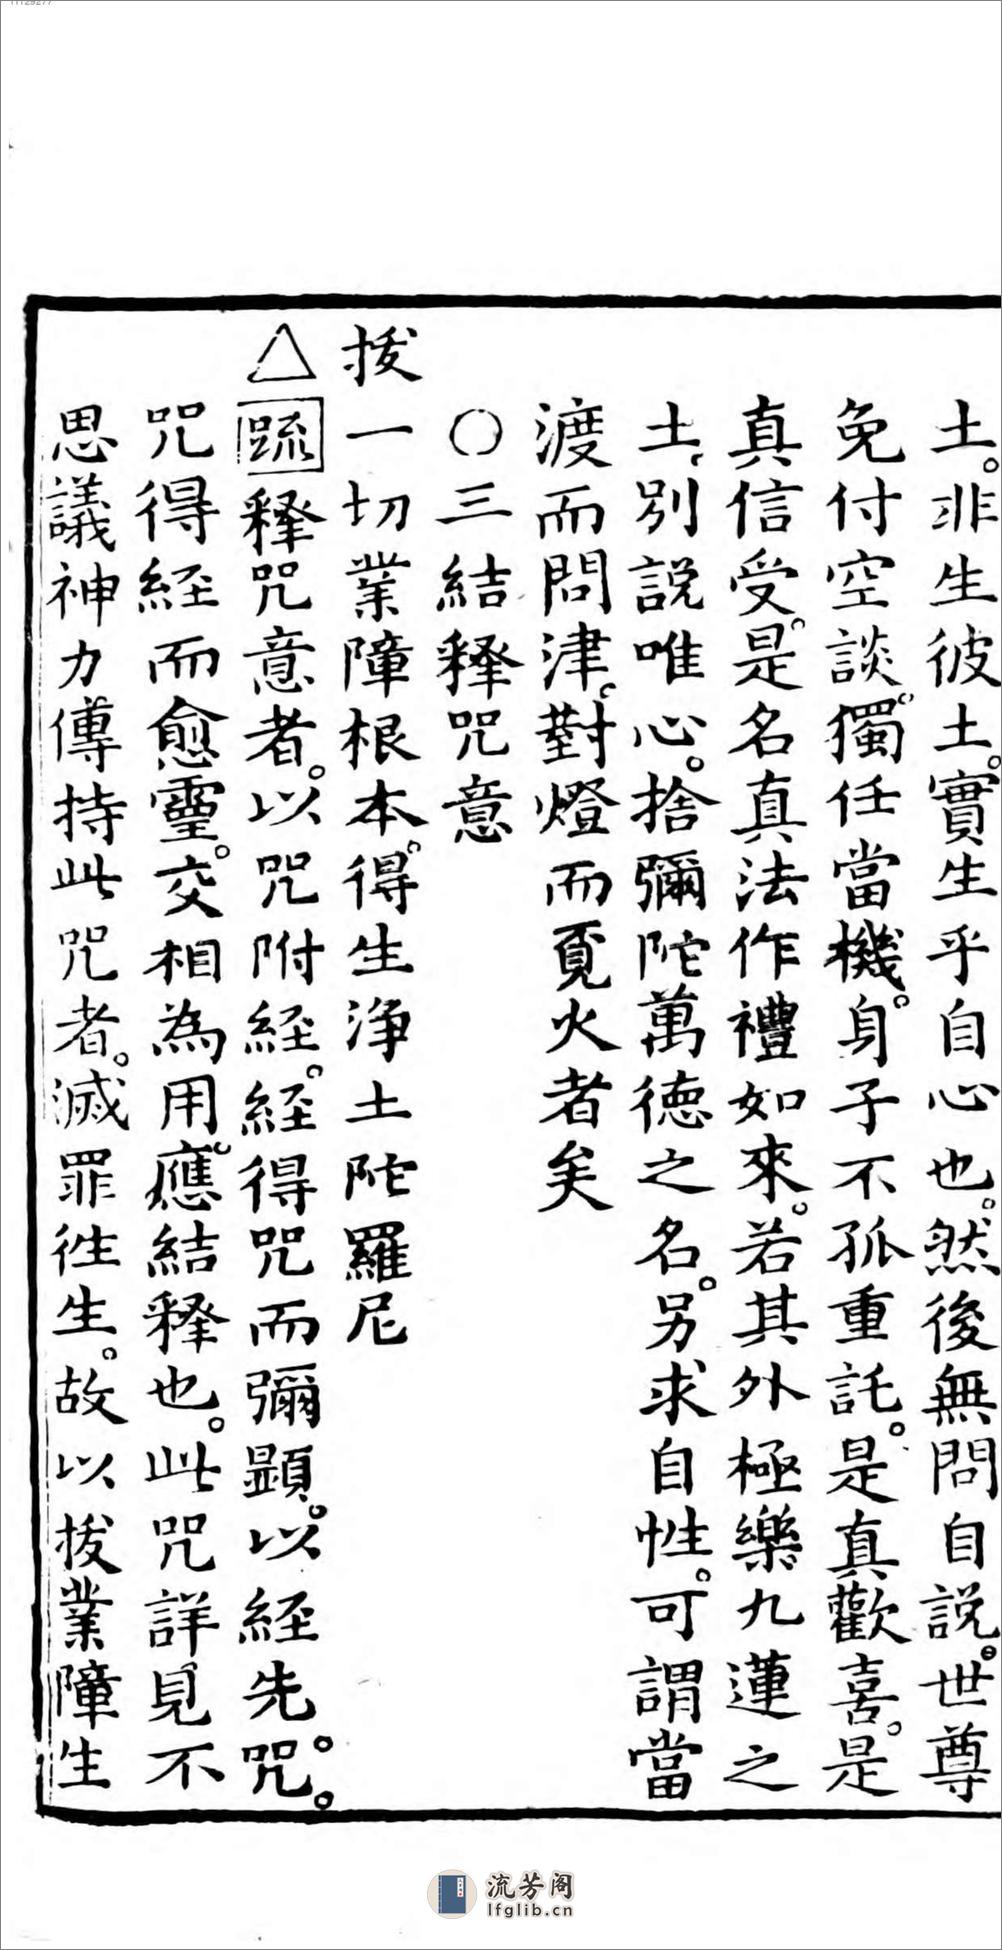 土。非生彼土。實生乎自心也。然後無問自説。世尊
免付空談。獨任當機。身子不孤重託。是真歡喜。是
真信受。是名真法作禮如來。若其外極樂九蓮之
土、別説唯心。捨彌陀萬德之名。另求自性。可謂當
渡而問津、對燈而覓火者矣
○三結釋咒意
拔一切業障根本。得生淨土陀羅尼
△疏釋咒意者。以咒附經。經得咒而彌顯。以經先咒。
咒得經而愈靈。交相為用。應結釋也。此咒詳見不
思議神力傳持此咒者。滅罪徃生。故以拔業障生
流芳阁
lfglib.cn